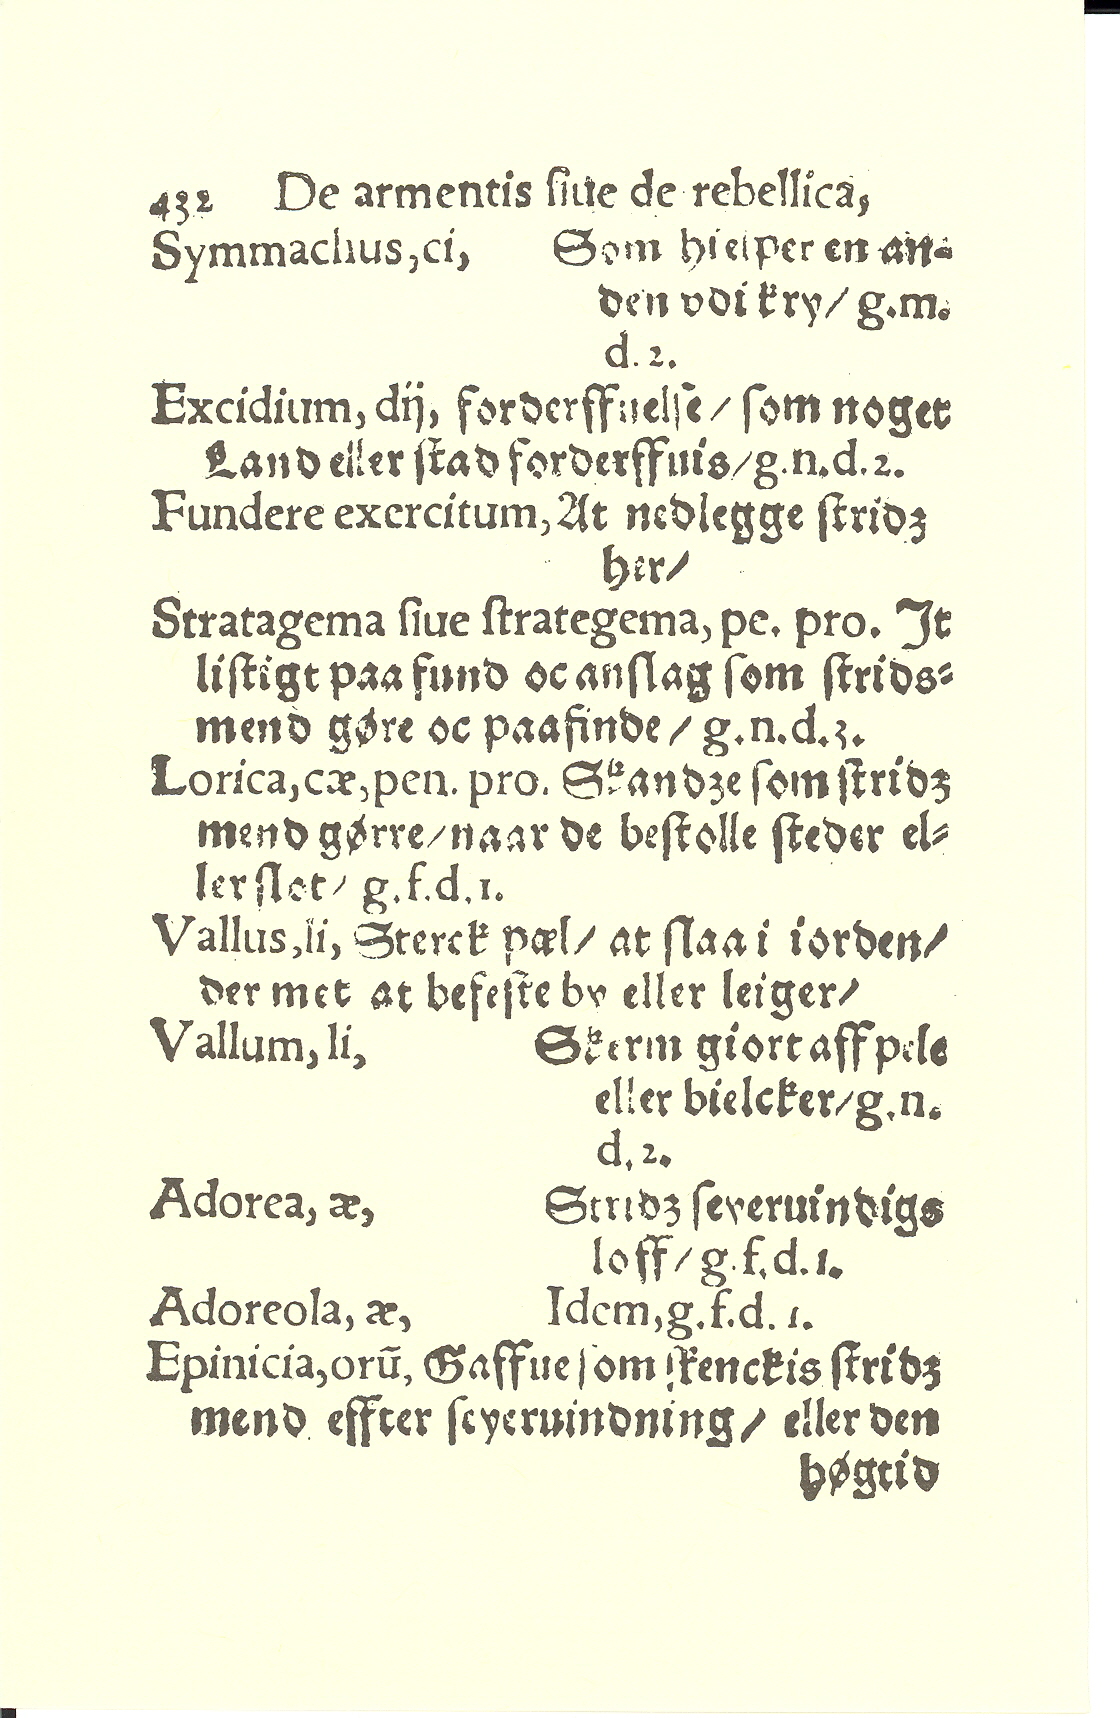 432 De armentis ſiue de rebellica,
Symmachus, ci, Som hielper en an⸗
den vdi kry/ g.m.
d. 2.
Excidium, dij, forderffuelſe/ ſom noget
Land eller ſtad forderffuis/ g.n.d.2.
Fundere exercitum, At nedlegge ſtridz
her/
Stratagema ſiue ſtrategema, pe. pro. It
liſtigt paa fund oc anſlag ſom ſtrids⸗
mend gøre oc paafinde/ g.n.d.3.
Lorica, cæ, pen. pro. Skandze ſom ſtridz
mend gørre/ naar de beſtolle ſteder el⸗
ler ſlot/ g.f.d.1.
Vallus, li, Sterck pæl/ at ſlaa i iorden/
der met at befeſte by eller leiger/
Vallum, li, Skerm giort aff pele
eller bielcker/ g.n.
d. 2.
Adorea, æ, Stridz ſeyeruindigs
loff/ g.f.d.1.
Adoreola, æ, Idem, g.f.d.1.
Epinicia, orū, Gaffue ſom ſkenckis ſtridz
mend effter ſeyeruindning/ eller den
høgtid